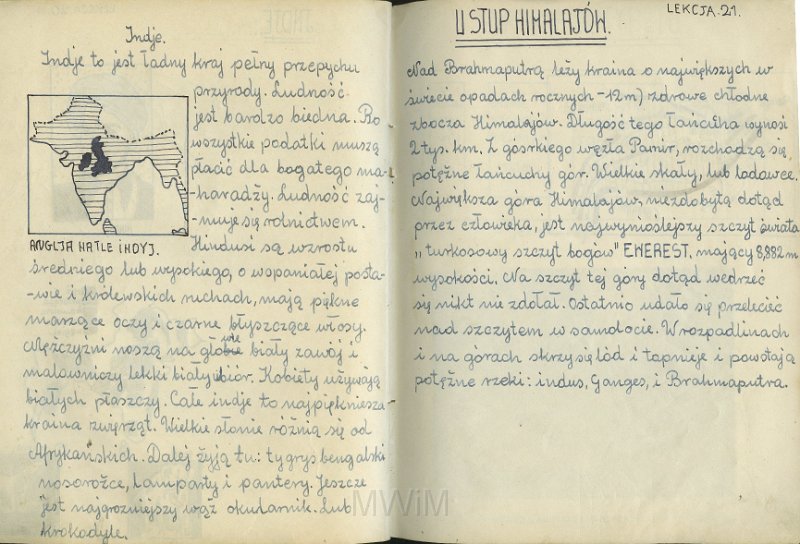 Indje.
Indje to jest ładny kraj pełny przepychu
przyrody. Ludność
jest bardzo biedna. Bo
wszystkie podatki muszą
płacić dla bogatego ma-
-haradży. Ludność zaj-
-muje się rolnictwem.
Hindusi są wzrostu
ANGLJA NA TLE INDYJ.
średniego lub wysokiego, o wspaniałej posta-
-wie i królewskich ruchach, mają piękne
marzące oczy i czarne błyszczące włosy.
Mężczyźni noszą na głowie biały zawój i
malowniczy lekki biały ubiór. Kobiety używają
białych płaszczy. Całe indje to najpiękniesza
kraina zwięrząt. Wielkie słonie różnią się od
Afrykańskich. Dalej żyją tu: tygrys bengalski
nosorożce, lamparty i pantery. Jeszcze
jest najgrozniejszy wąż okularnik. Lub
krokodyle.
LEKCJA 21.
U STUP HIMALAJÓW.
Nad Brahmaputrą leży kraina o największych w
świecie opadach rocznych -12m) zdrowe chłodne
zbocza Himalajów. Długość tego łańcucha wynosi
2 tys. km. Z górskiego węzła Pamir, rozchodzą się
potężne łańcuchy gór. Wielkie skały, lub lodowce.
Największa góra Himalajów, niezdobytą dotąd
przez człowieka, jest najwynioślejszy szczyt świata
"turkosowy szczyt bogów" EWEREST. mający 8,882 m
wysokości. Na szczyt tej góry dotąd wedrzeć
się nikt nie zdołał. Ostatnio udało się przelecieć
nad szczytem w samolocie. W rozpadlinach
i na górach skrzy się lód i tapnieje i powstają
potężne rzeki: indus, Ganges, i Brahmaputra.
MWiM